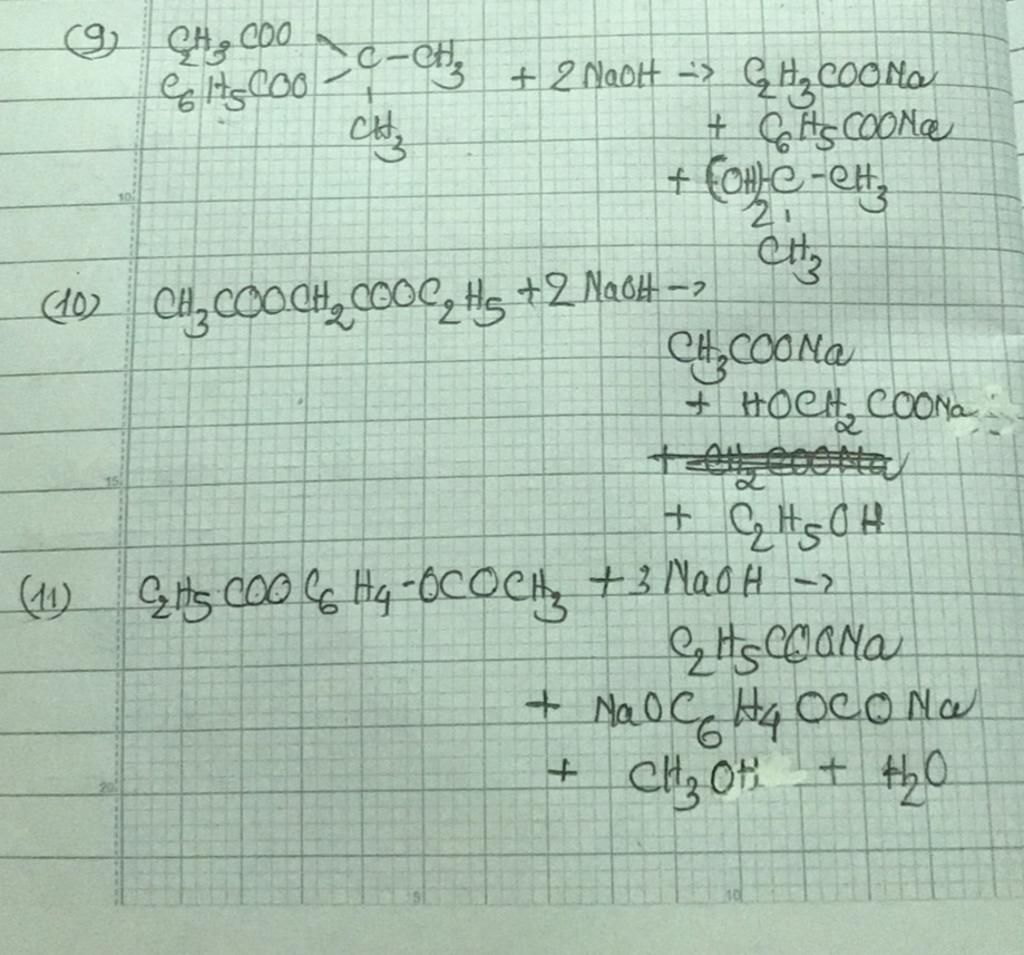 (9) C₂H₃COO
C₆H₅COO C-CH₃ + 2NaOH -> C₂H₃COONa
CH₃ + C₆H₅COONa
+ (OH)₂-C-CH₃
CH₃
(10) CH₃COOCH₂COOC₂H₅ + 2NaOH ->
CH₃COONa
+ HOCH₂COONa
+ CH₂COONa
+ C₂H₅OH
(11) C₂H₅COOC₆H₄-OCOCH₃ + 3NaOH ->
C₂H₅COONa
+ NaOC₆H₄OCONa
+ CH₃OH + H₂O
10
15
20
5
10